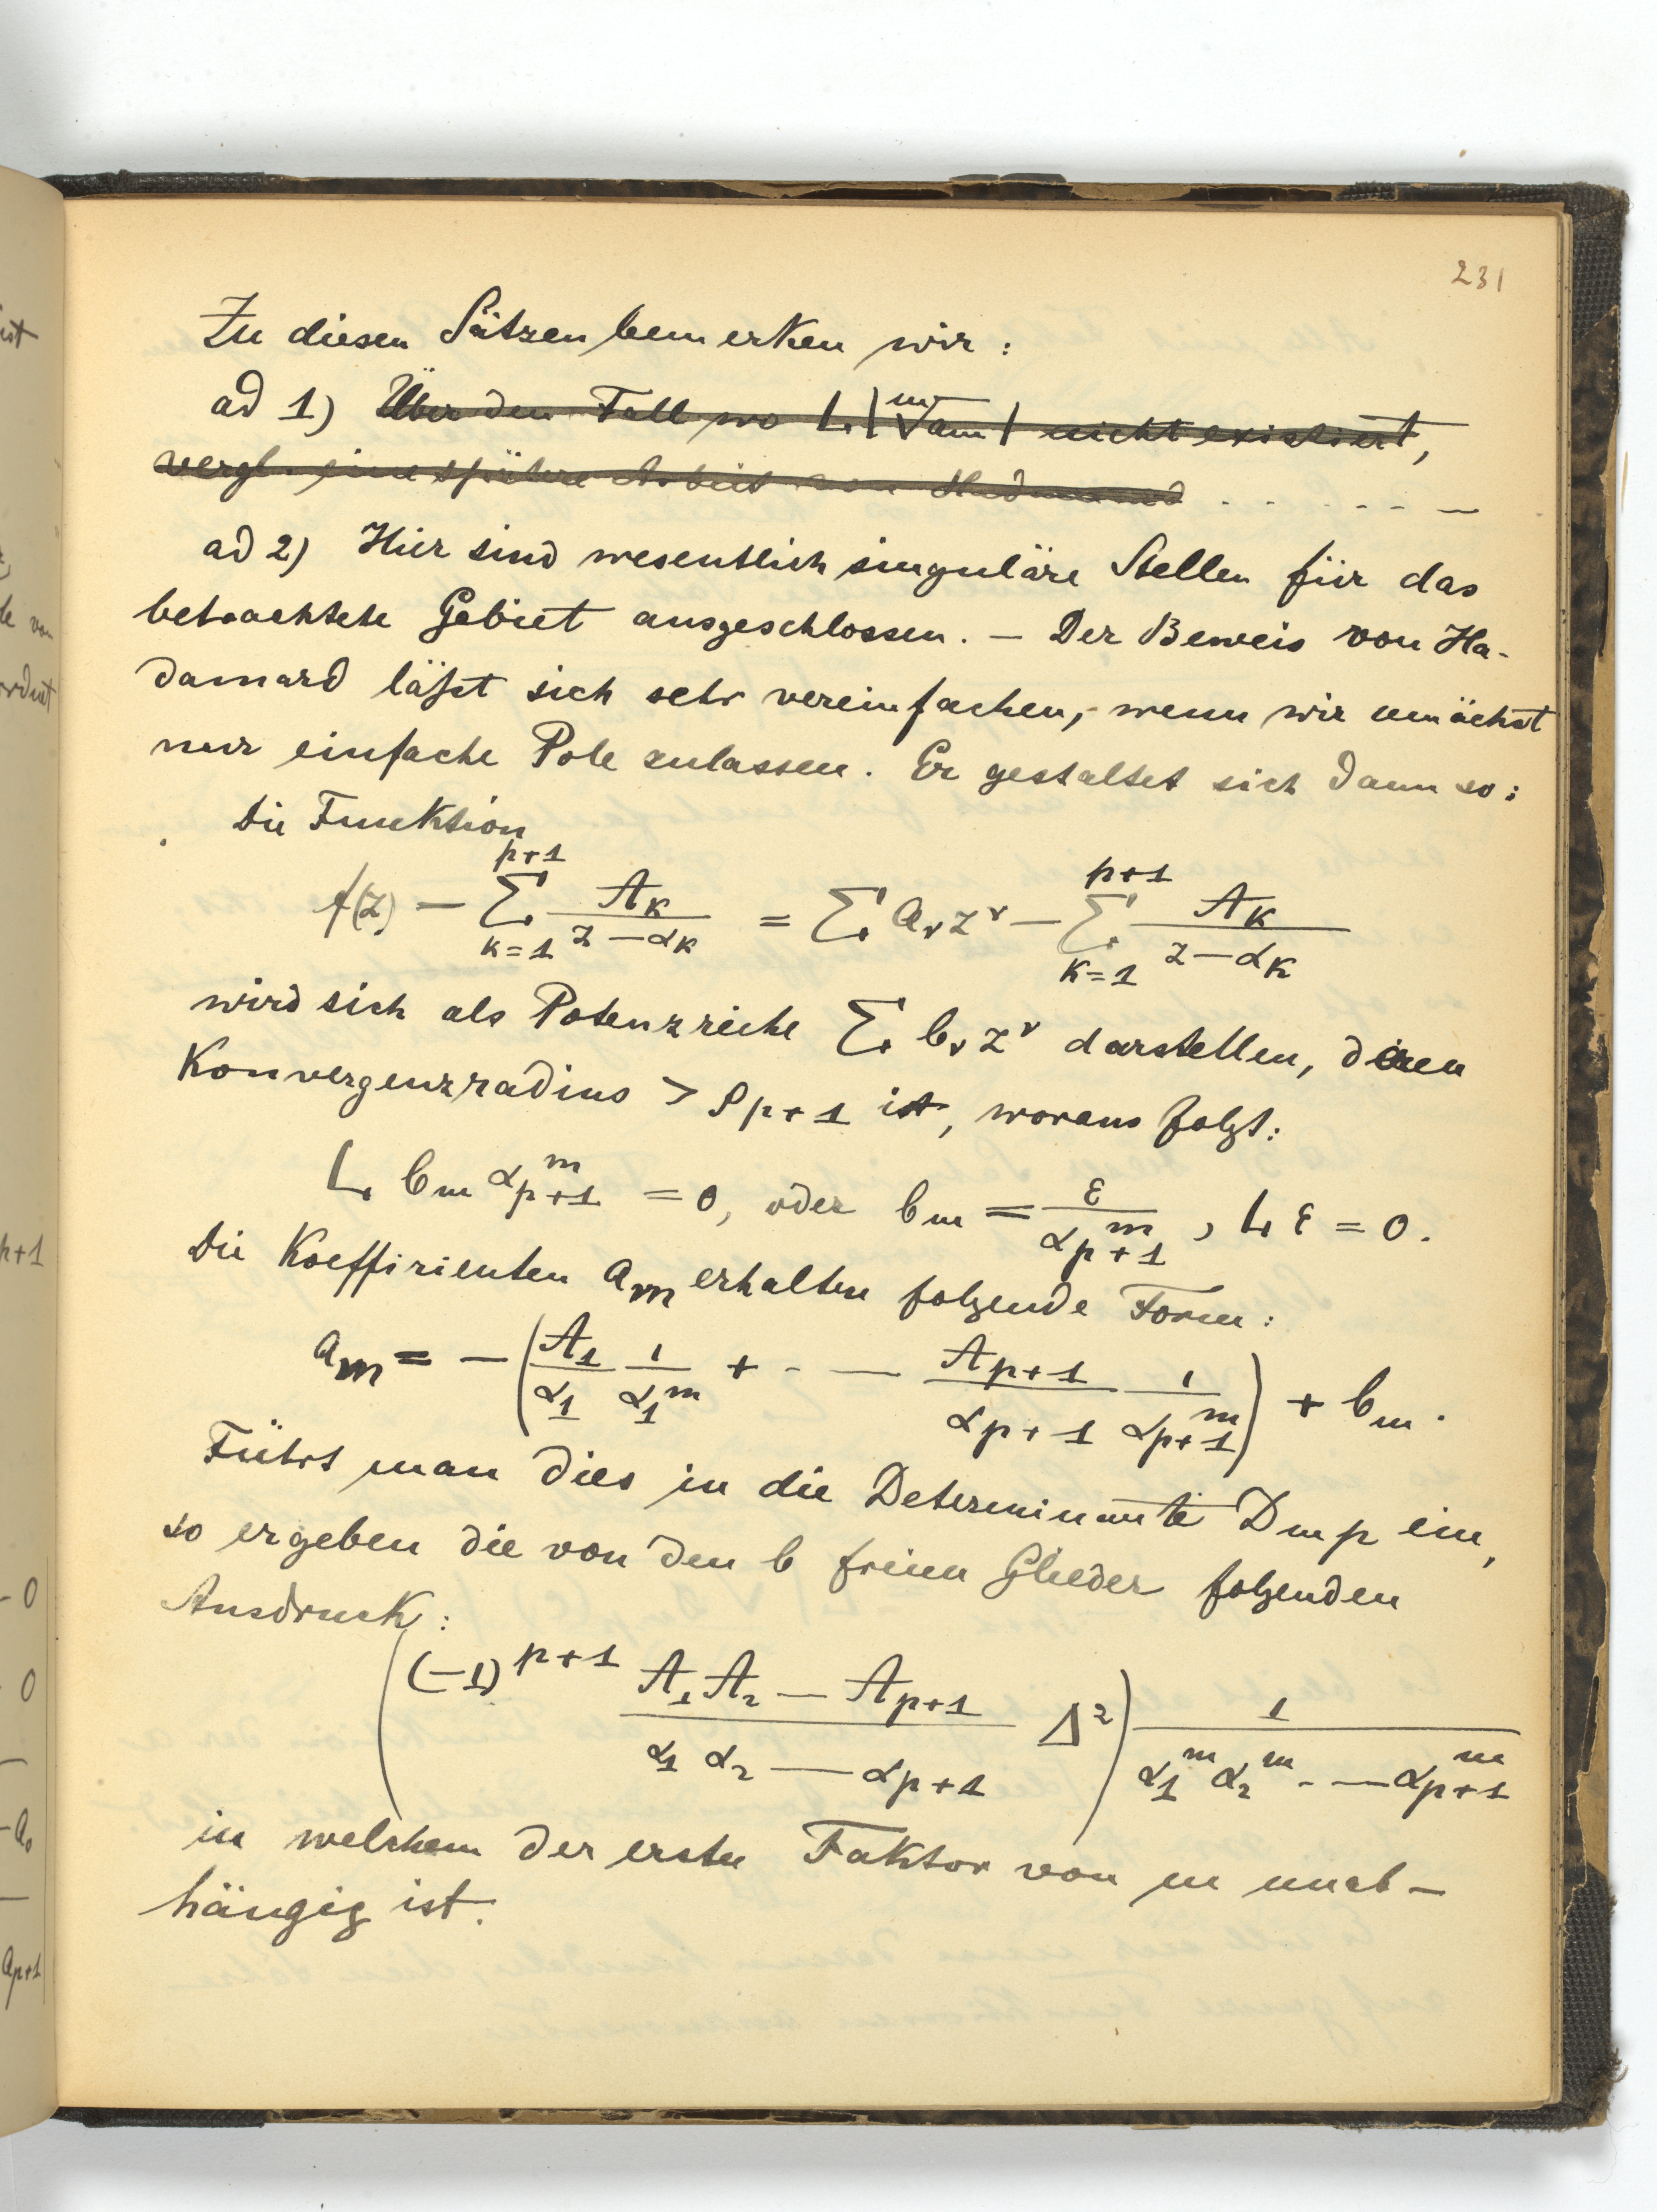 231
Zu diesen Sätzen bemerken wir:
ad 1) Über den Fall wo L |\sqrt[m]{a_m}| nicht existiert,
vergl. eine spätere Arbeit von Hadamard . . . . . —
ad 2) Hier sind wesentlich singuläre Stellen für das
betrachtete Gebiet ausgeschlossen. — Der Beweis von Ha-
damard läßt sich sehr vereinfachen, wenn wir zunächst
nur einfache Pole zulassen. Er gestaltet sich dann so:
Die Funktion
f(z) — \sum_{k=1}^{p+1} \frac{A_k}{z-α_k} = \sum a_ν z^ν — \sum_{k=1}^{p+1} \frac{A_k}{z-α_k}
wird sich als Potenzreihe \sum b_ν z^ν darstellen, deren
Konvergenzradius > ρ_{p+1} ist, woraus folgt:
L b_m α_{p+1}^m = 0, oder b_m = \frac{ε}{α_{p+1}^m}, L ε = 0.
Die Koeffizienten a_m erhalten folgende Form:
a_m = — (\frac{A_1}{α_1} \frac{1}{α_1^m} + - — \frac{A_{p+1}}{α_{p+1}} \frac{1}{α_{p+1}^m}) + b_m.
Führt man dies in die Determinante D_{mp} ein,
so ergeben die von den b freien Glieder folgenden
Ausdruck:
((-1)^{p+1} \frac{A_1 A_2 — A_{p+1}}{α_1 α_2 — α_{p+1}} Δ^2) \frac{1}{α_1^m α_2^m - — α_{p+1}^m}
in welchem der erste Faktor von m unab-
hängig ist.
ist
von
p+1
- 0
0
- a_0
a_{p+1}